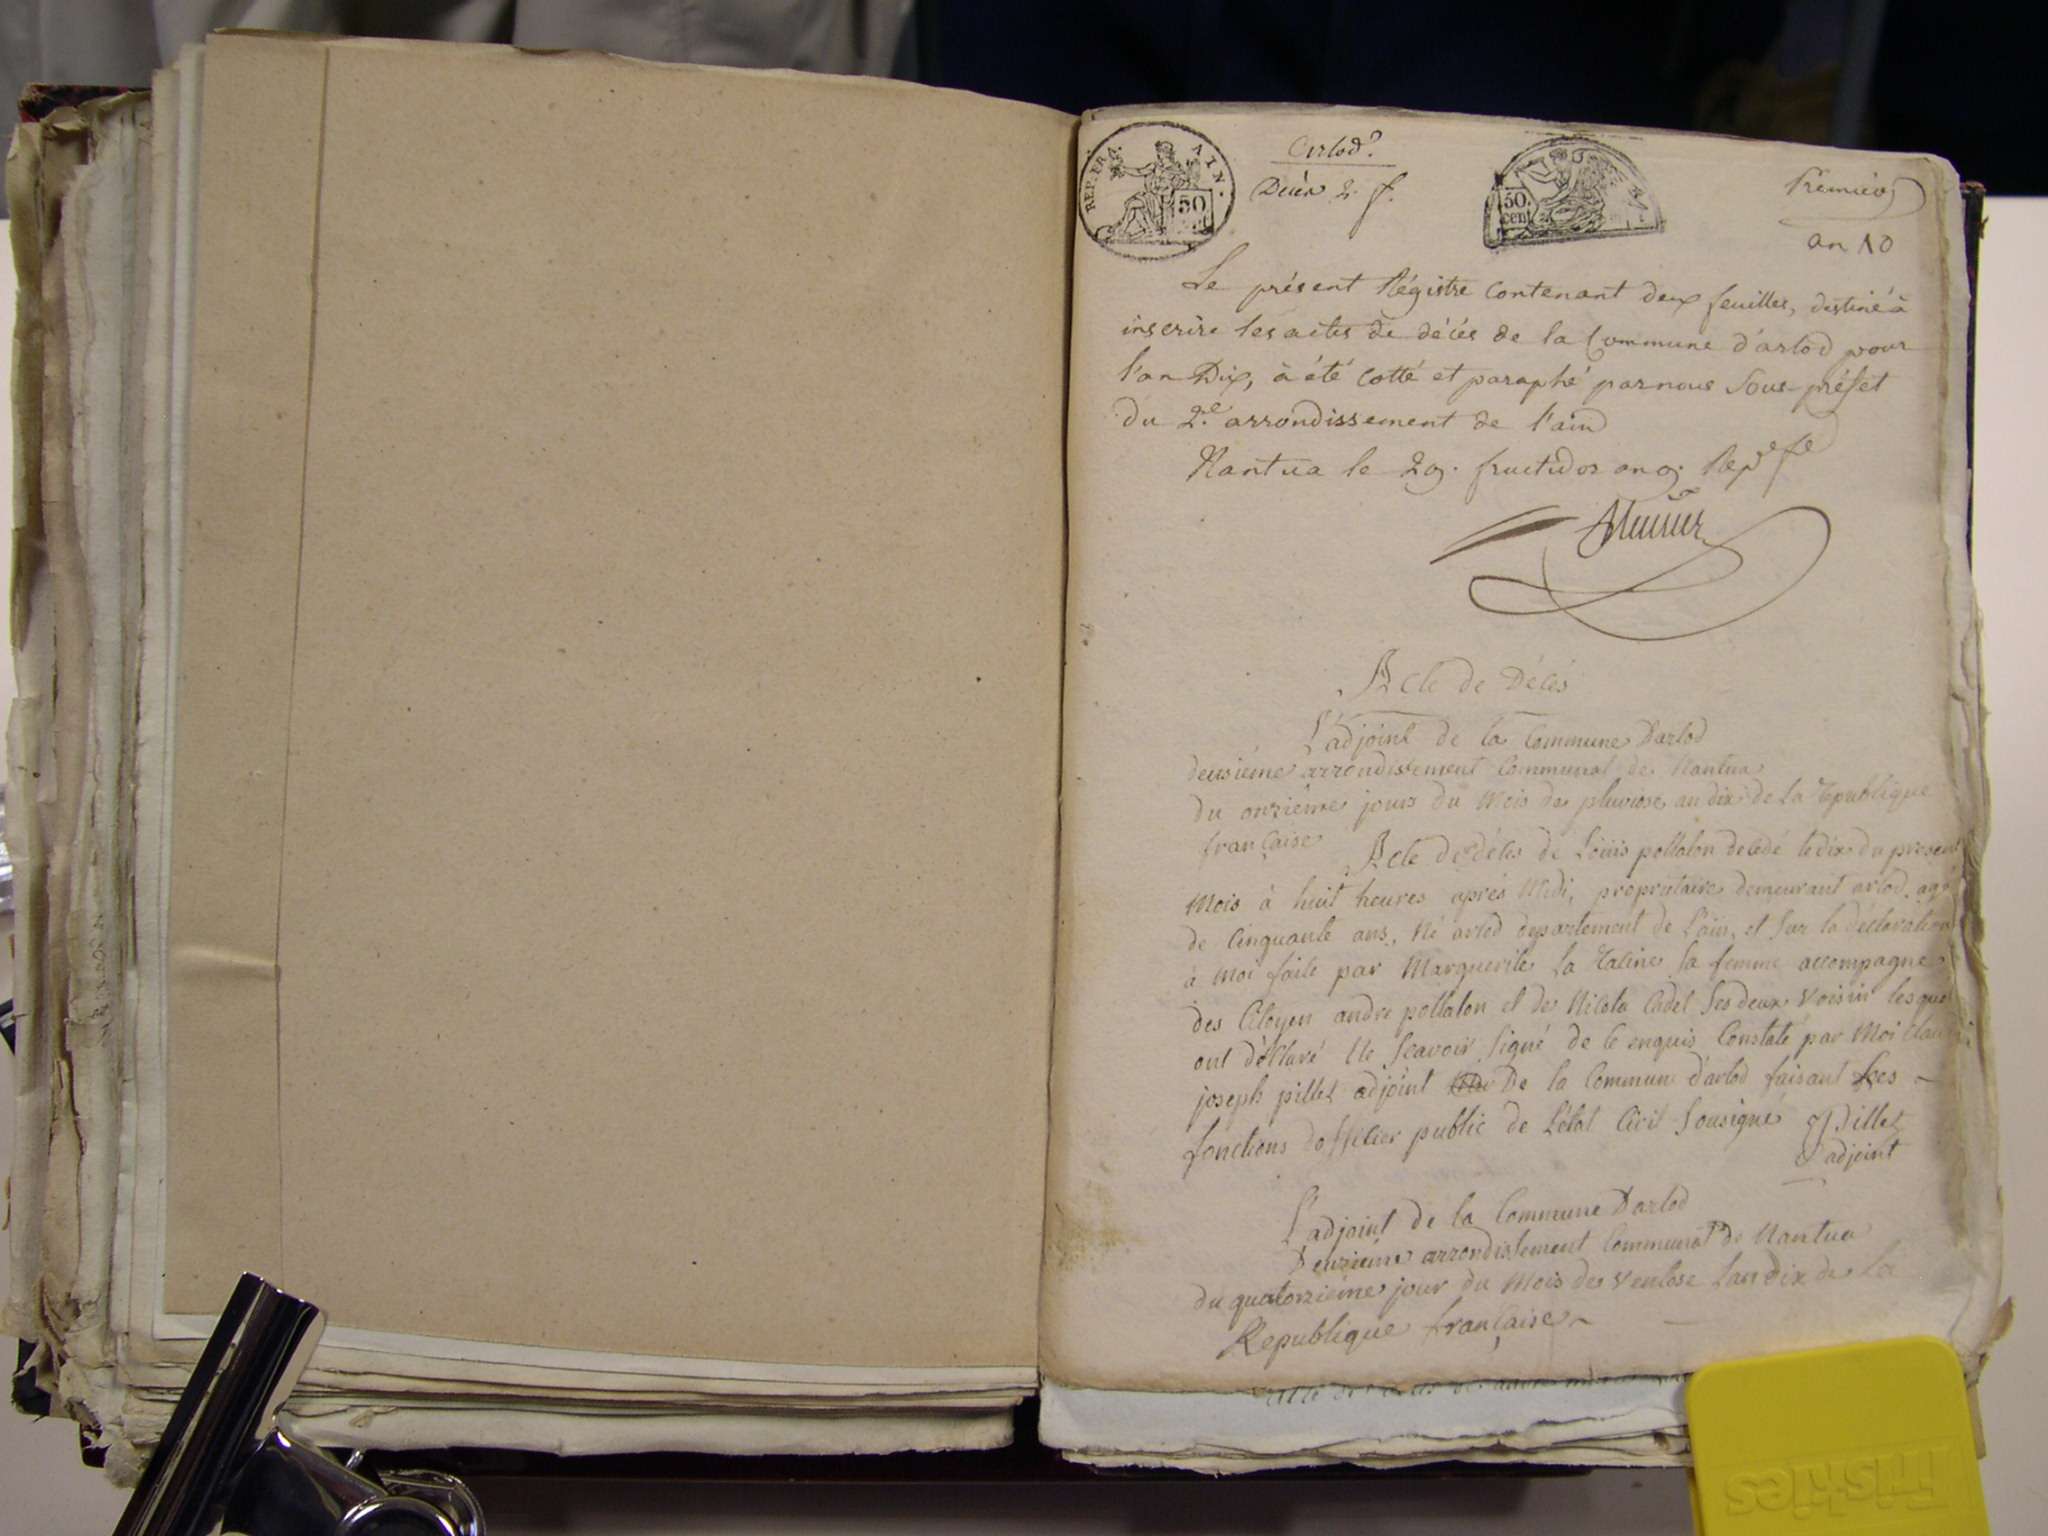 REP. FRA. AIN.
50
Arlod
Décès 2. f.
50.
cen
Premier
an 10
Le présent Régistre contenant deux feuilles, destiné à
inscrire les actes de décès de la Commune d'arlod pour
l'an Dix, à été cotté et paraphé par nous Sous-préfet
du 2.e arrondissement de l'ain
Nantua le 29. fructidor an 9. Rep.e f.e
Acte de Décés
L'adjoint de la Commune Darlod
deusième arrondissement Communal de Nantua
du onzième jours du Mois de pluviose an dix de La Republique
française
Acte de décès de Loüis pollalon decédé le dix du present
Mois à huit heures après Midi, propriétaire demeurant arlod, agé
de Cinquante ans, Né arlod departement de L'ain, et Sur la déclaration
à moi faite par Marguerite La Taline sa femme accompagné
des Citoyen andre pollalon et de Nicola Cadet Ses deux voisin lesquel
ont déclaré Ne Scavoir Signé de ce enquis Constaté par Moi
joseph pillet adjoint De la Commun d'arlod faisant
fonctions dofficier public de L'état Civil Sousigné J. Pillet
adjoint
L'adjoint de la Commune Darlod
Deuzieme arrondissement Communal de Nantua
du quatorzième jour du Mois de ventose Lan dix de La
Republique française
Friskies